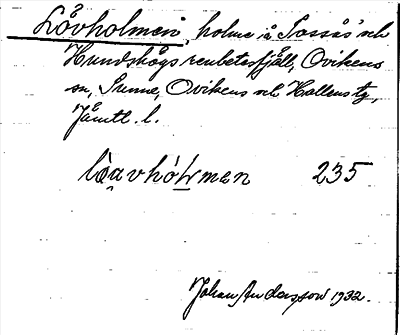 Lövholmen, holme i Tossås' och
Hundshögs renbetesfjäll, Ovikens
sn, Sunne, Ovikens och Hallens tg,
Jämtl. l.
235
Johan Andersson 1932.